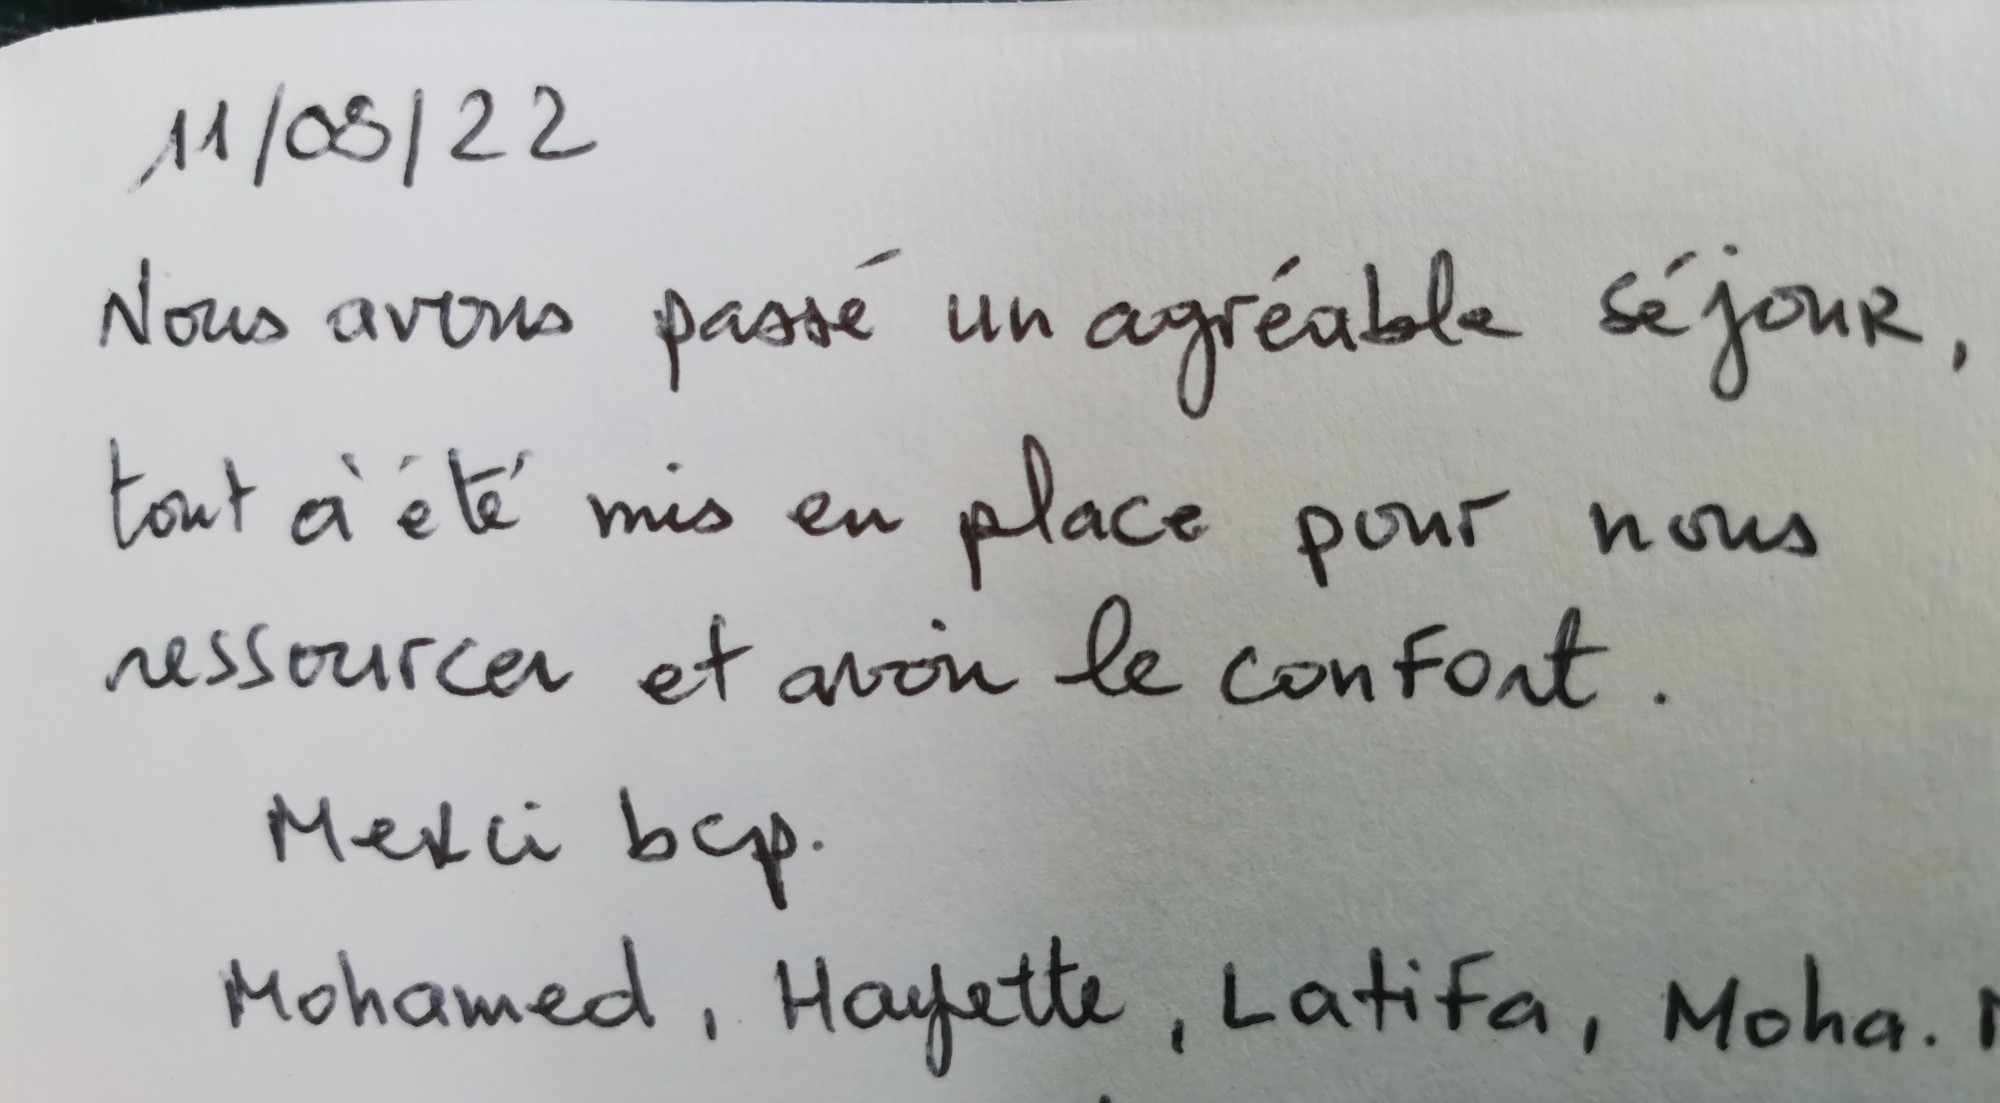 11/08/22
Nous avons passé un agréable séjour,
tout à été mis en place pour nous
ressourcer et avoir le confort.
Merci bcp.
Mohamed, Hayette, Latifa, Moha.